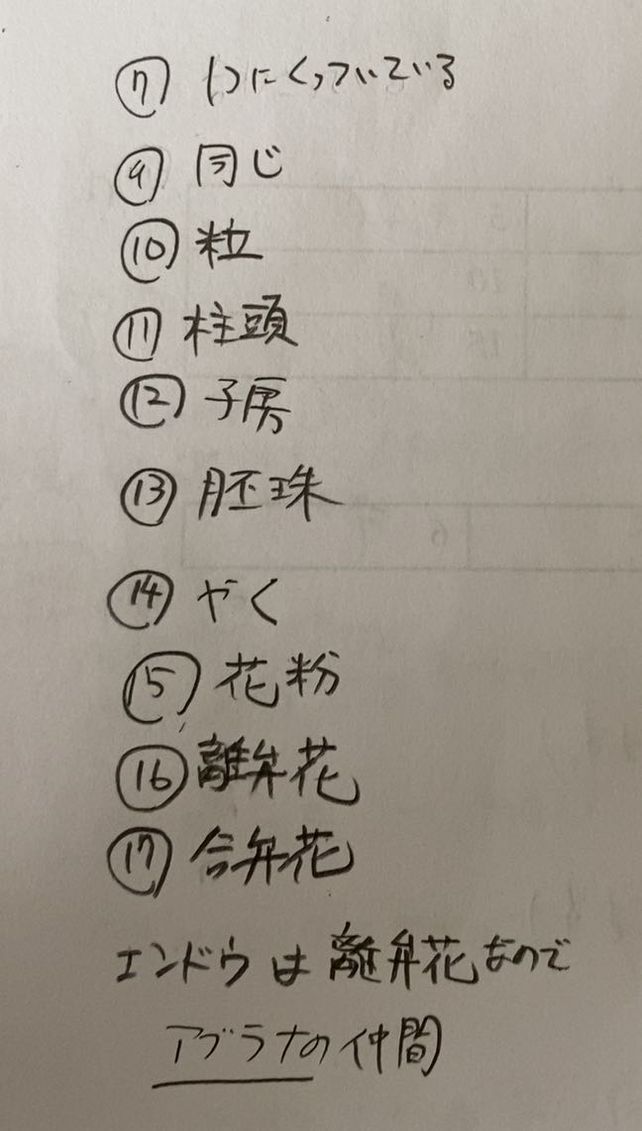 ⑦ 1つにくっついている
⑨ 同じ
⑩ 粒
⑪ 柱頭
⑫ 子房
⑬ 胚珠
⑭ やく
⑮ 花粉
⑯ 離弁花
⑰ 合弁花
エンドウは離弁花なので
アブラナの仲間